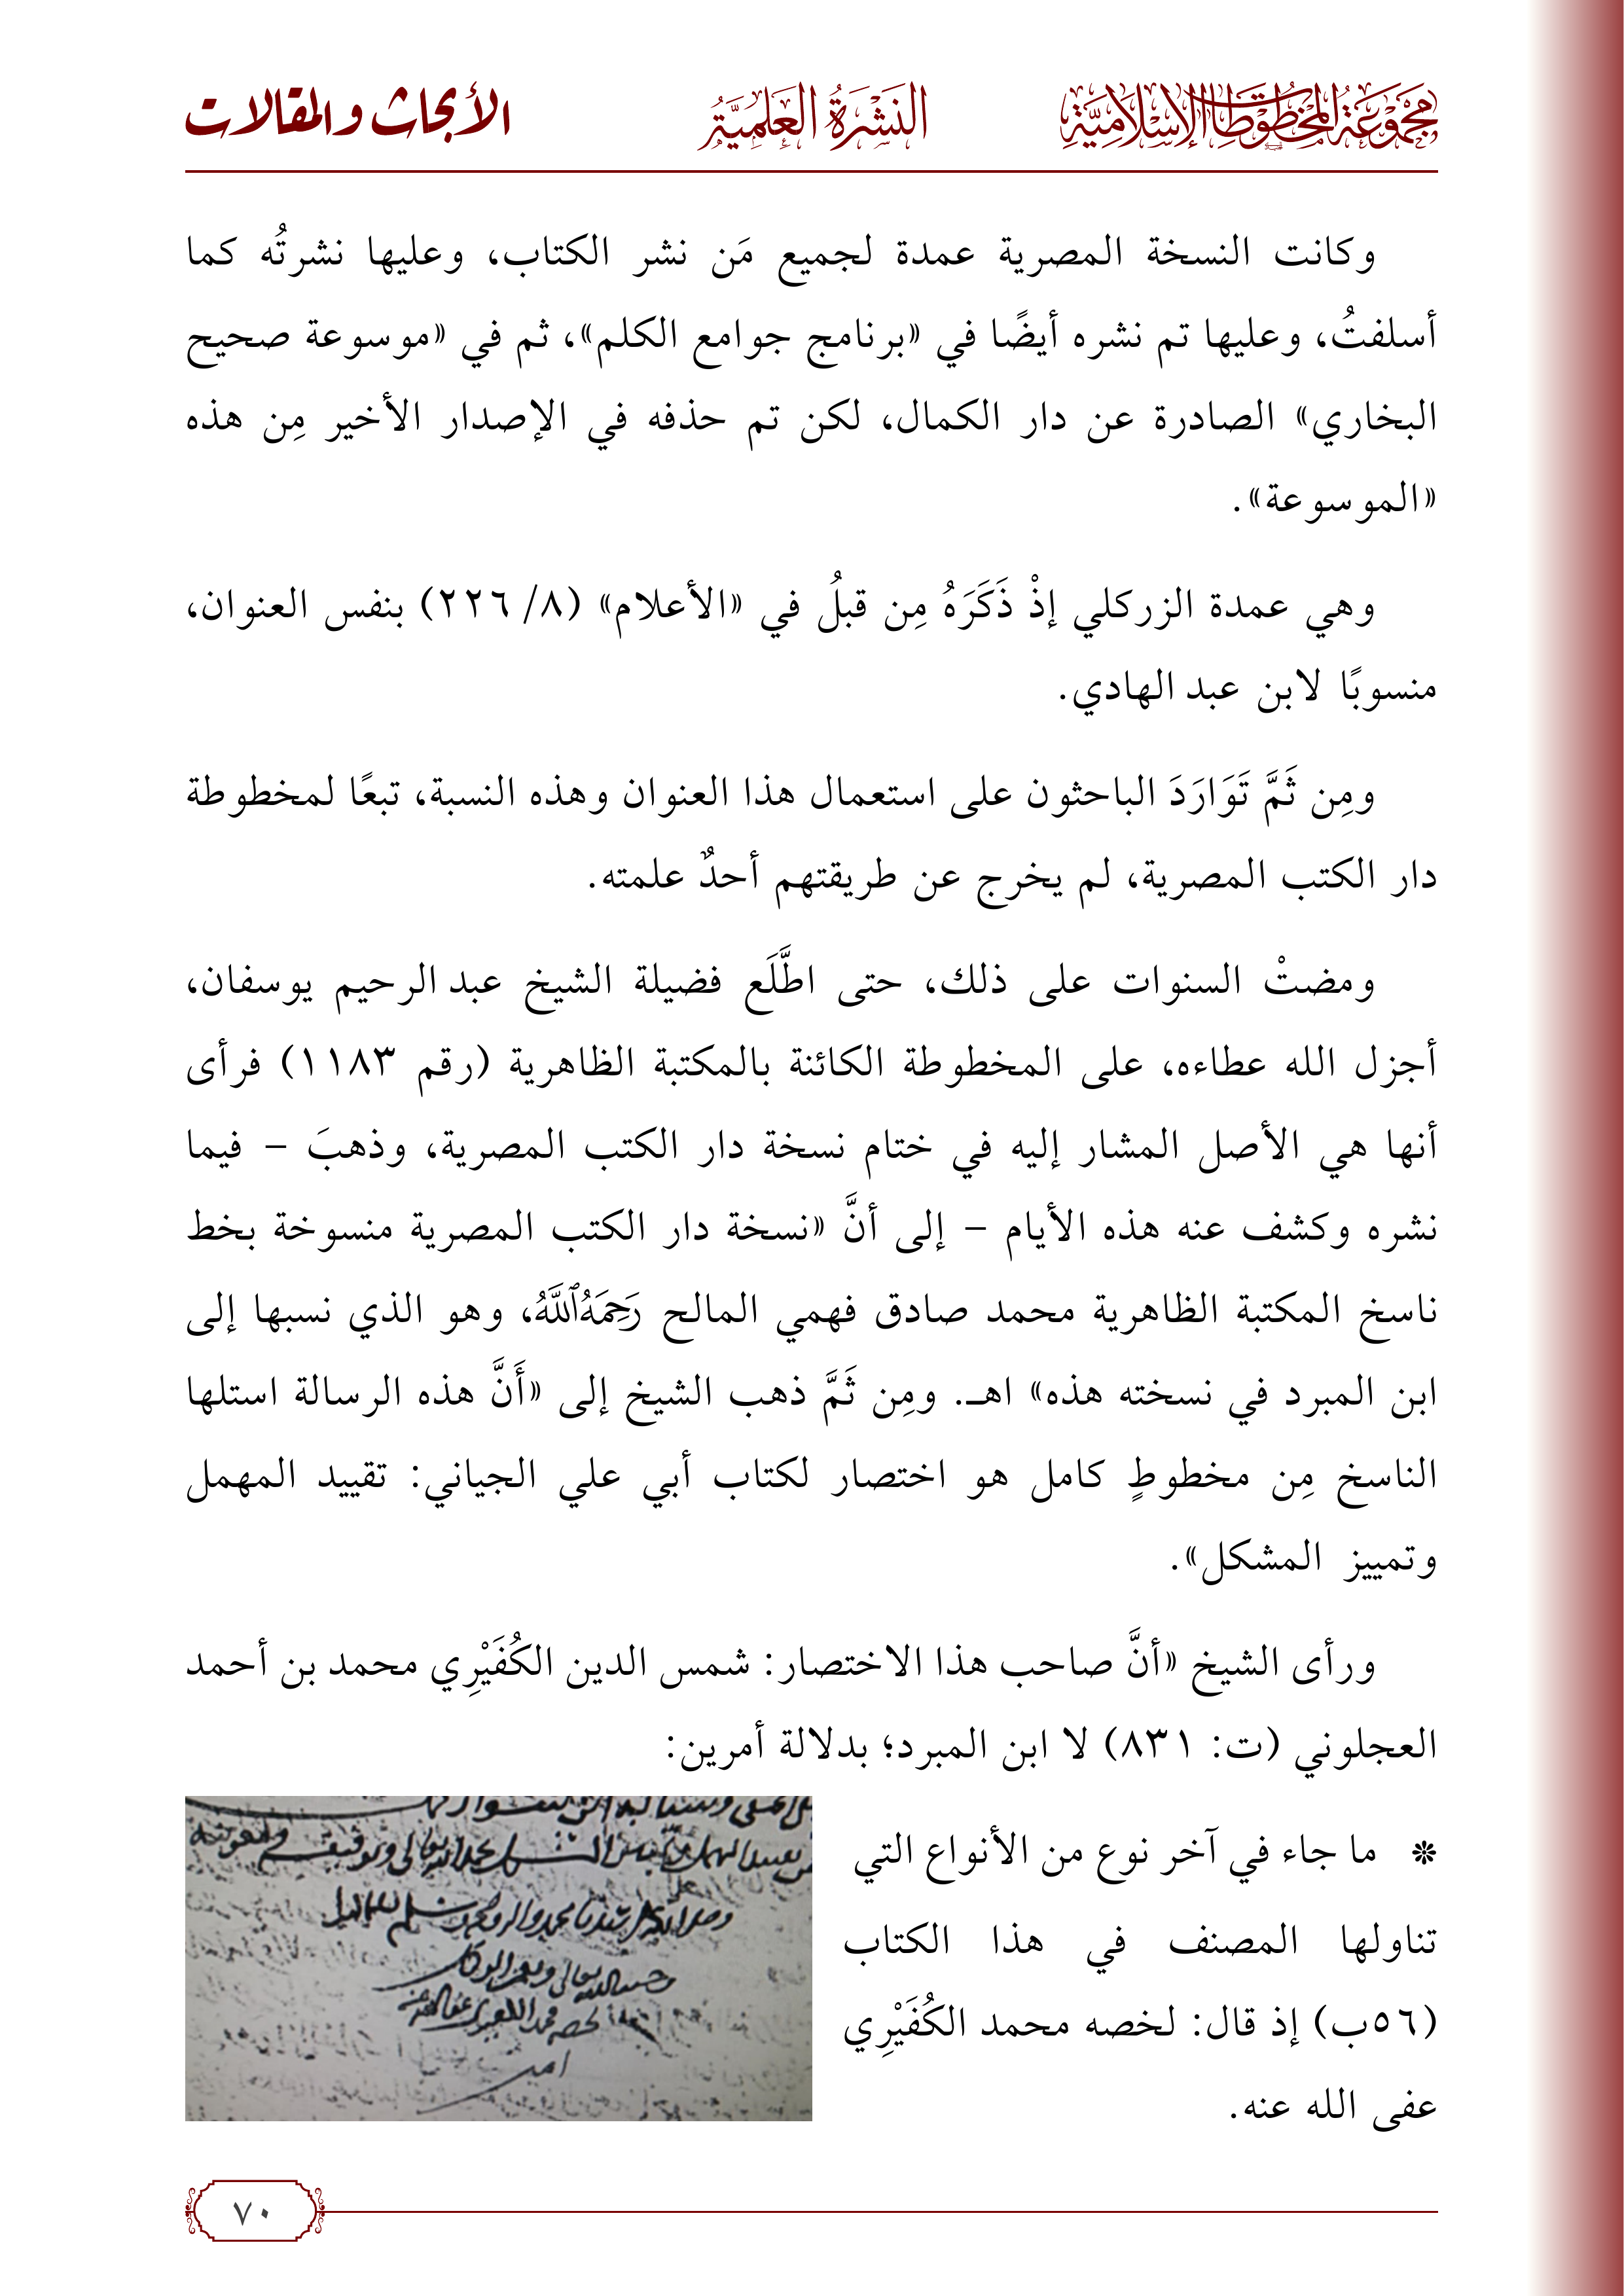 مَجْمُوعَةُ المَخْطُوطَاتِ الإِسْلَامِيَّةِ
النَّشْرَةُ العِلْمِيَّةُ
الأبحاث والمقالات
وكانت النسخة المصرية عمدة لجميع مَن نشر الكتاب، وعليها نشرتُه كما
أسلفتُ، وعليها تم نشره أيضًا في «برنامج جوامع الكلم»، ثم في «موسوعة صحيح
البخاري» الصادرة عن دار الكمال، لكن تم حذفه في الإصدار الأخير مِن هذه
«الموسوعة».
وهي عمدة الزركلي إذْ ذَكَرَهُ مِن قبلُ في «الأعلام» (٨/ ٢٢٦) بنفس العنوان،
منسوبًا لابن عبد الهادي.
ومِن ثَمَّ تَوَارَدَ الباحثون على استعمال هذا العنوان وهذه النسبة، تبعًا لمخطوطة
دار الكتب المصرية، لم يخرج عن طريقتهم أحدٌ علمته.
ومضتْ السنوات على ذلك، حتى اطَّلَع فضيلة الشيخ عبد الرحيم يوسفان،
أجزل الله عطاءه، على المخطوطة الكائنة بالمكتبة الظاهرية (رقم ١١٨٣) فرأى
أنها هي الأصل المشار إليه في ختام نسخة دار الكتب المصرية، وذهبَ – فيما
نشره وكشف عنه هذه الأيام – إلى أنَّ «نسخة دار الكتب المصرية منسوخة بخط
ناسخ المكتبة الظاهرية محمد صادق فهمي المالح رَحِمَهُ ٱللَّهُ، وهو الذي نسبها إلى
ابن المبرد في نسخته هذه» اهـ. ومِن ثَمَّ ذهب الشيخ إلى «أَنَّ هذه الرسالة استلها
الناسخ مِن مخطوطٍ كامل هو اختصار لكتاب أبي علي الجياني: تقييد المهمل
وتمييز المشكل».
ورأى الشيخ «أنَّ صاحب هذا الاختصار: شمس الدين الكُفَيْرِي محمد بن أحمد
العجلوني (ت: ٨٣١) لا ابن المبرد؛ بدلالة أمرين:
❊ ما جاء في آخر نوع من الأنواع التي
تناولها المصنف في هذا الكتاب
(٥٦ب) إذ قال: لخصه محمد الكُفَيْرِي
عفى الله عنه.
حسبنا الله تعالى ونعم الوكيل
امين
٧٠